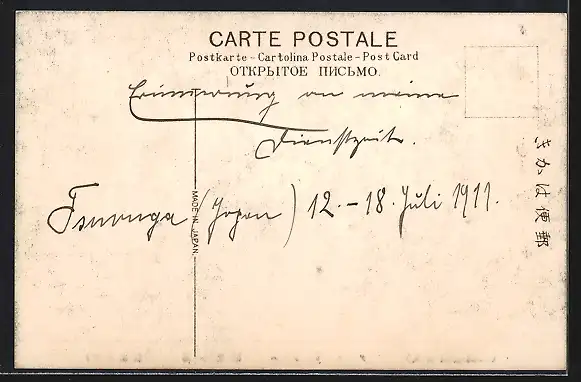 CARTE POSTALE
Postkarte – Cartolina Postale – Post Card
ОТКРЫТОЕ ПИСЬМО.
Erinnerung an meine
Dienstzeit.
Tsuruga (Japan) 12. – 18. Juli 1911.
MADE IN JAPAN.
きかは便郵